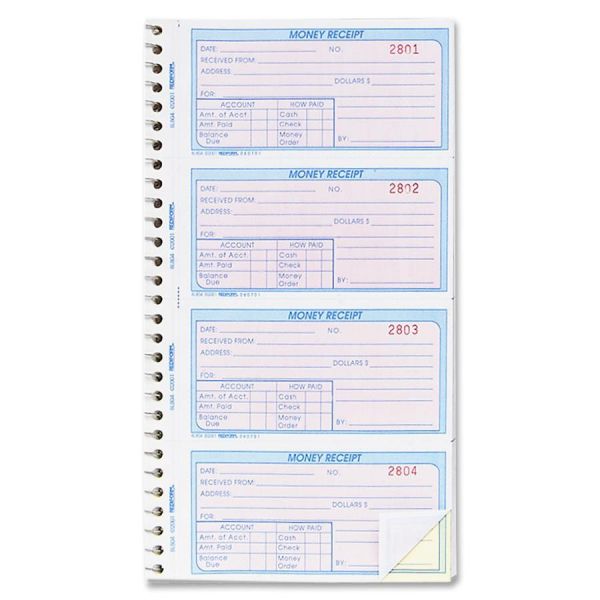 MONEY RECEIPT
DATE: NO. 2801
RECEIVED FROM:
ADDRESS:
DOLLARS $
FOR:
ACCOUNT HOW PAID
Amt. of Acct. Cash
Amt. Paid Check
Balance Due Money Order
BY:
8L804 CC001 REDIFORM.
MONEY RECEIPT
DATE: NO. 2802
RECEIVED FROM:
ADDRESS:
DOLLARS $
FOR:
ACCOUNT HOW PAID
Amt. of Acct. Cash
Amt. Paid Check
Balance Due Money Order
BY:
REDIFORM.
MONEY RECEIPT
DATE: NO. 2803
RECEIVED FROM:
ADDRESS:
DOLLARS $
FOR:
ACCOUNT HOW PAID
Amt. of Acct. Cash
Amt. Paid Check
Balance Due Money Order
BY:
REDIFORM.
MONEY RECEIPT
DATE: NO. 2804
RECEIVED FROM:
ADDRESS:
DOLLARS $
FOR:
ACCOUNT HOW PAID
Amt. of Acct. Cash
Amt. Paid Check
Balance Due Money Order
BY:
REDIFORM.